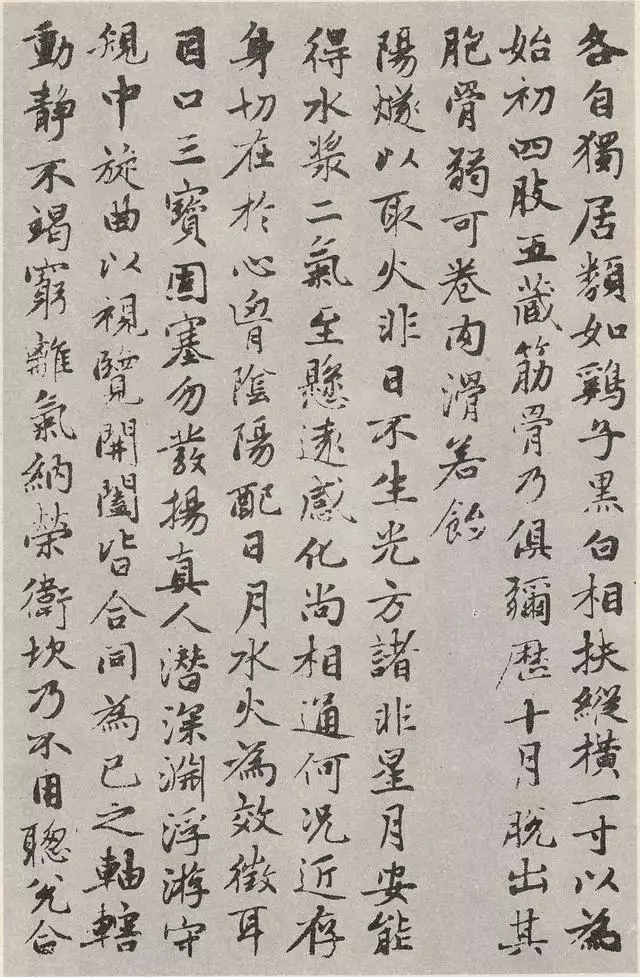 各自獨居類如鷄子黑白相扶縱橫一寸以為
始初四肢五藏筋骨乃俱彌歷十月脫出其
胞骨弱可卷肉滑若飴
陽燧以取火非日不生光方諸非星月安能
得水漿二氣至懸遠感化尚相通何況近存
身切在於心胷陰陽配日月水火為效徵耳
目口三寶固塞勿發揚真人潛深淵浮游守
規中旋曲以視覽開闔皆合同為己之軸轄
動靜不竭窮離氣納榮衛坎乃不用聰兌合